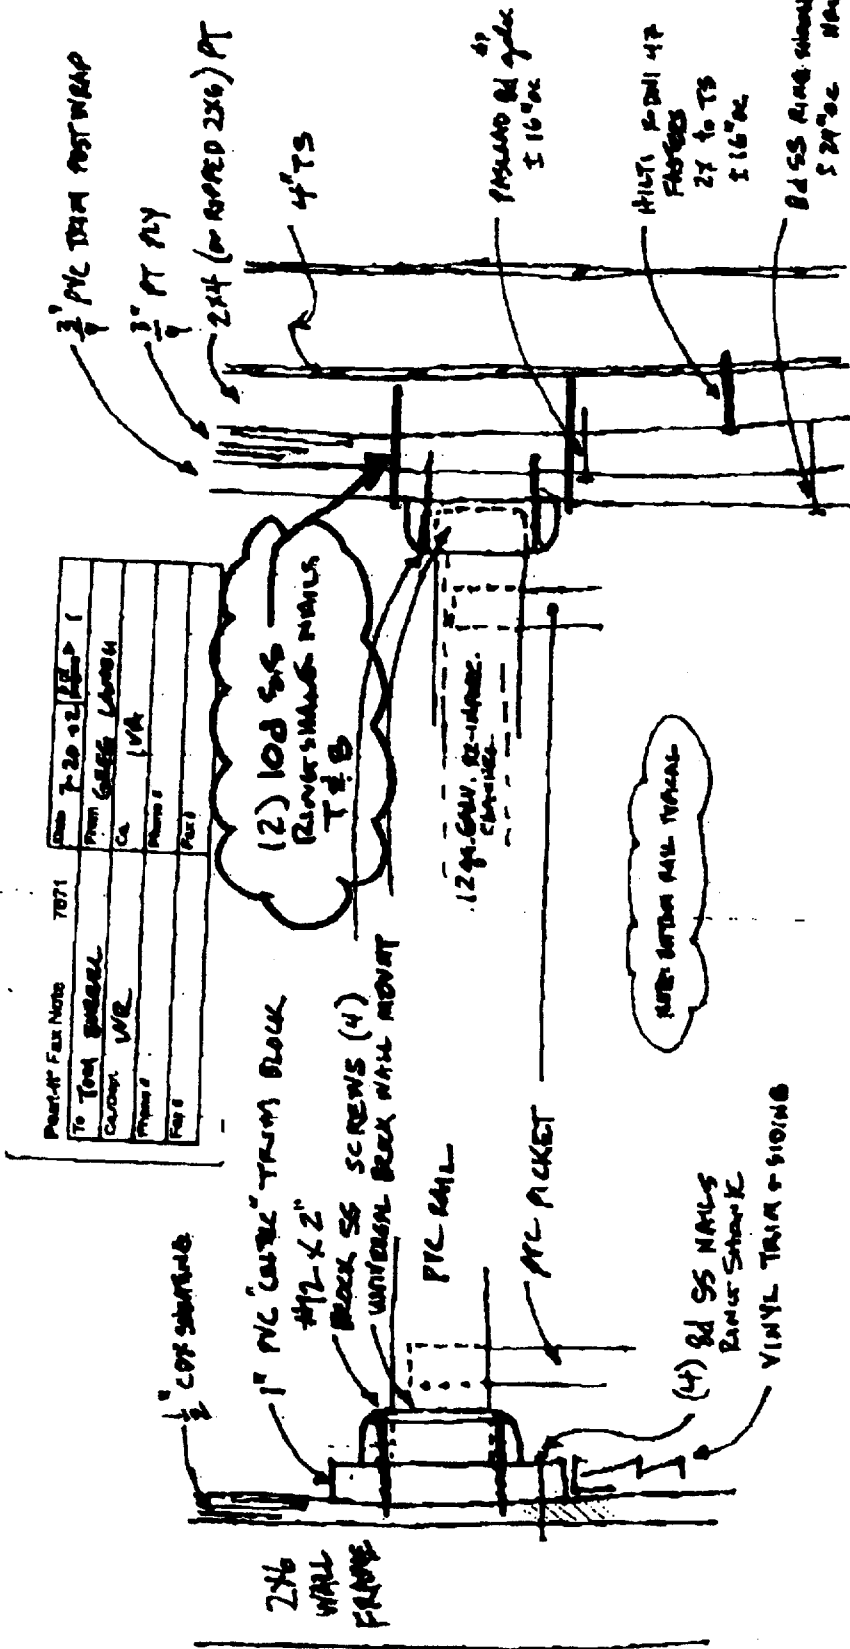 Post-it® Fax Note 7671
Date 7-20-02
To Tom
From GREG
Co./Dept. WR
Co.
Phone #
Phone #
Fax #
Fax #
3/4" PVC TRIM POST WRAP
3/4" PT PLY
2X4 (or RIPPED 2X6) PT
4" TS
PASLOAD 8d galv
± 16" OC
HILTI X-DNI 47
FASTENERS
2X to TS
± 16" OC
8d SS RING SHANK
± 24" OC
(2) 10d S.S.
RING SHANK NAILS
T & B
12 ga. GALV. RE-INFORC.
CHANNEL
NOTE: BOTTOM RAIL TYPICAL
1/2" CDX SHEATHING
1" PVC "CELTEC" TRIM BLOCK
#12 X 2"
BLOCK SS SCREWS (4)
UNIVERSAL BLOCK WALL MOUNT
PVC RAIL
PVC PICKET
(4) 8d SS NAILS
RING SHANK
VINYL TRIM + SIDING
2X6
WALL
FRAME